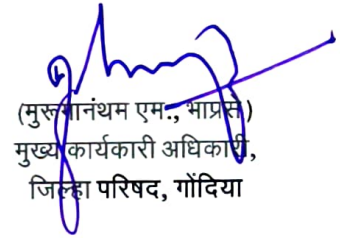 (मुरूगानंथम एम., भाप्रसे)
मुख्य कार्यकारी अधिकारी,
जिल्हा परिषद, गोंदिया